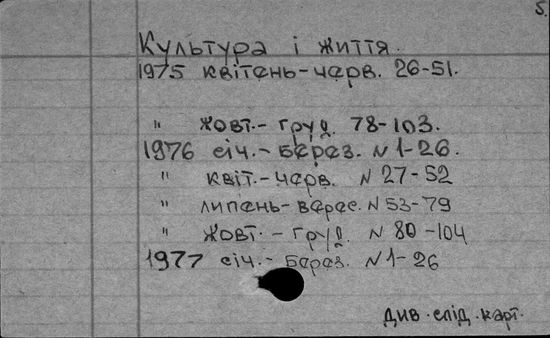 5.
Культура і життя.
1975 квітень-черв. 26-51.
" жовт.- груд. 78-103.
1976 січ.- берез. N 1-26.
" квіт.-черв. N 27-52
" липень-верес. N 53-79
" жовт.- груд. N 80-104
1977 січ.- берез. N 1-26
див. слід. карт.